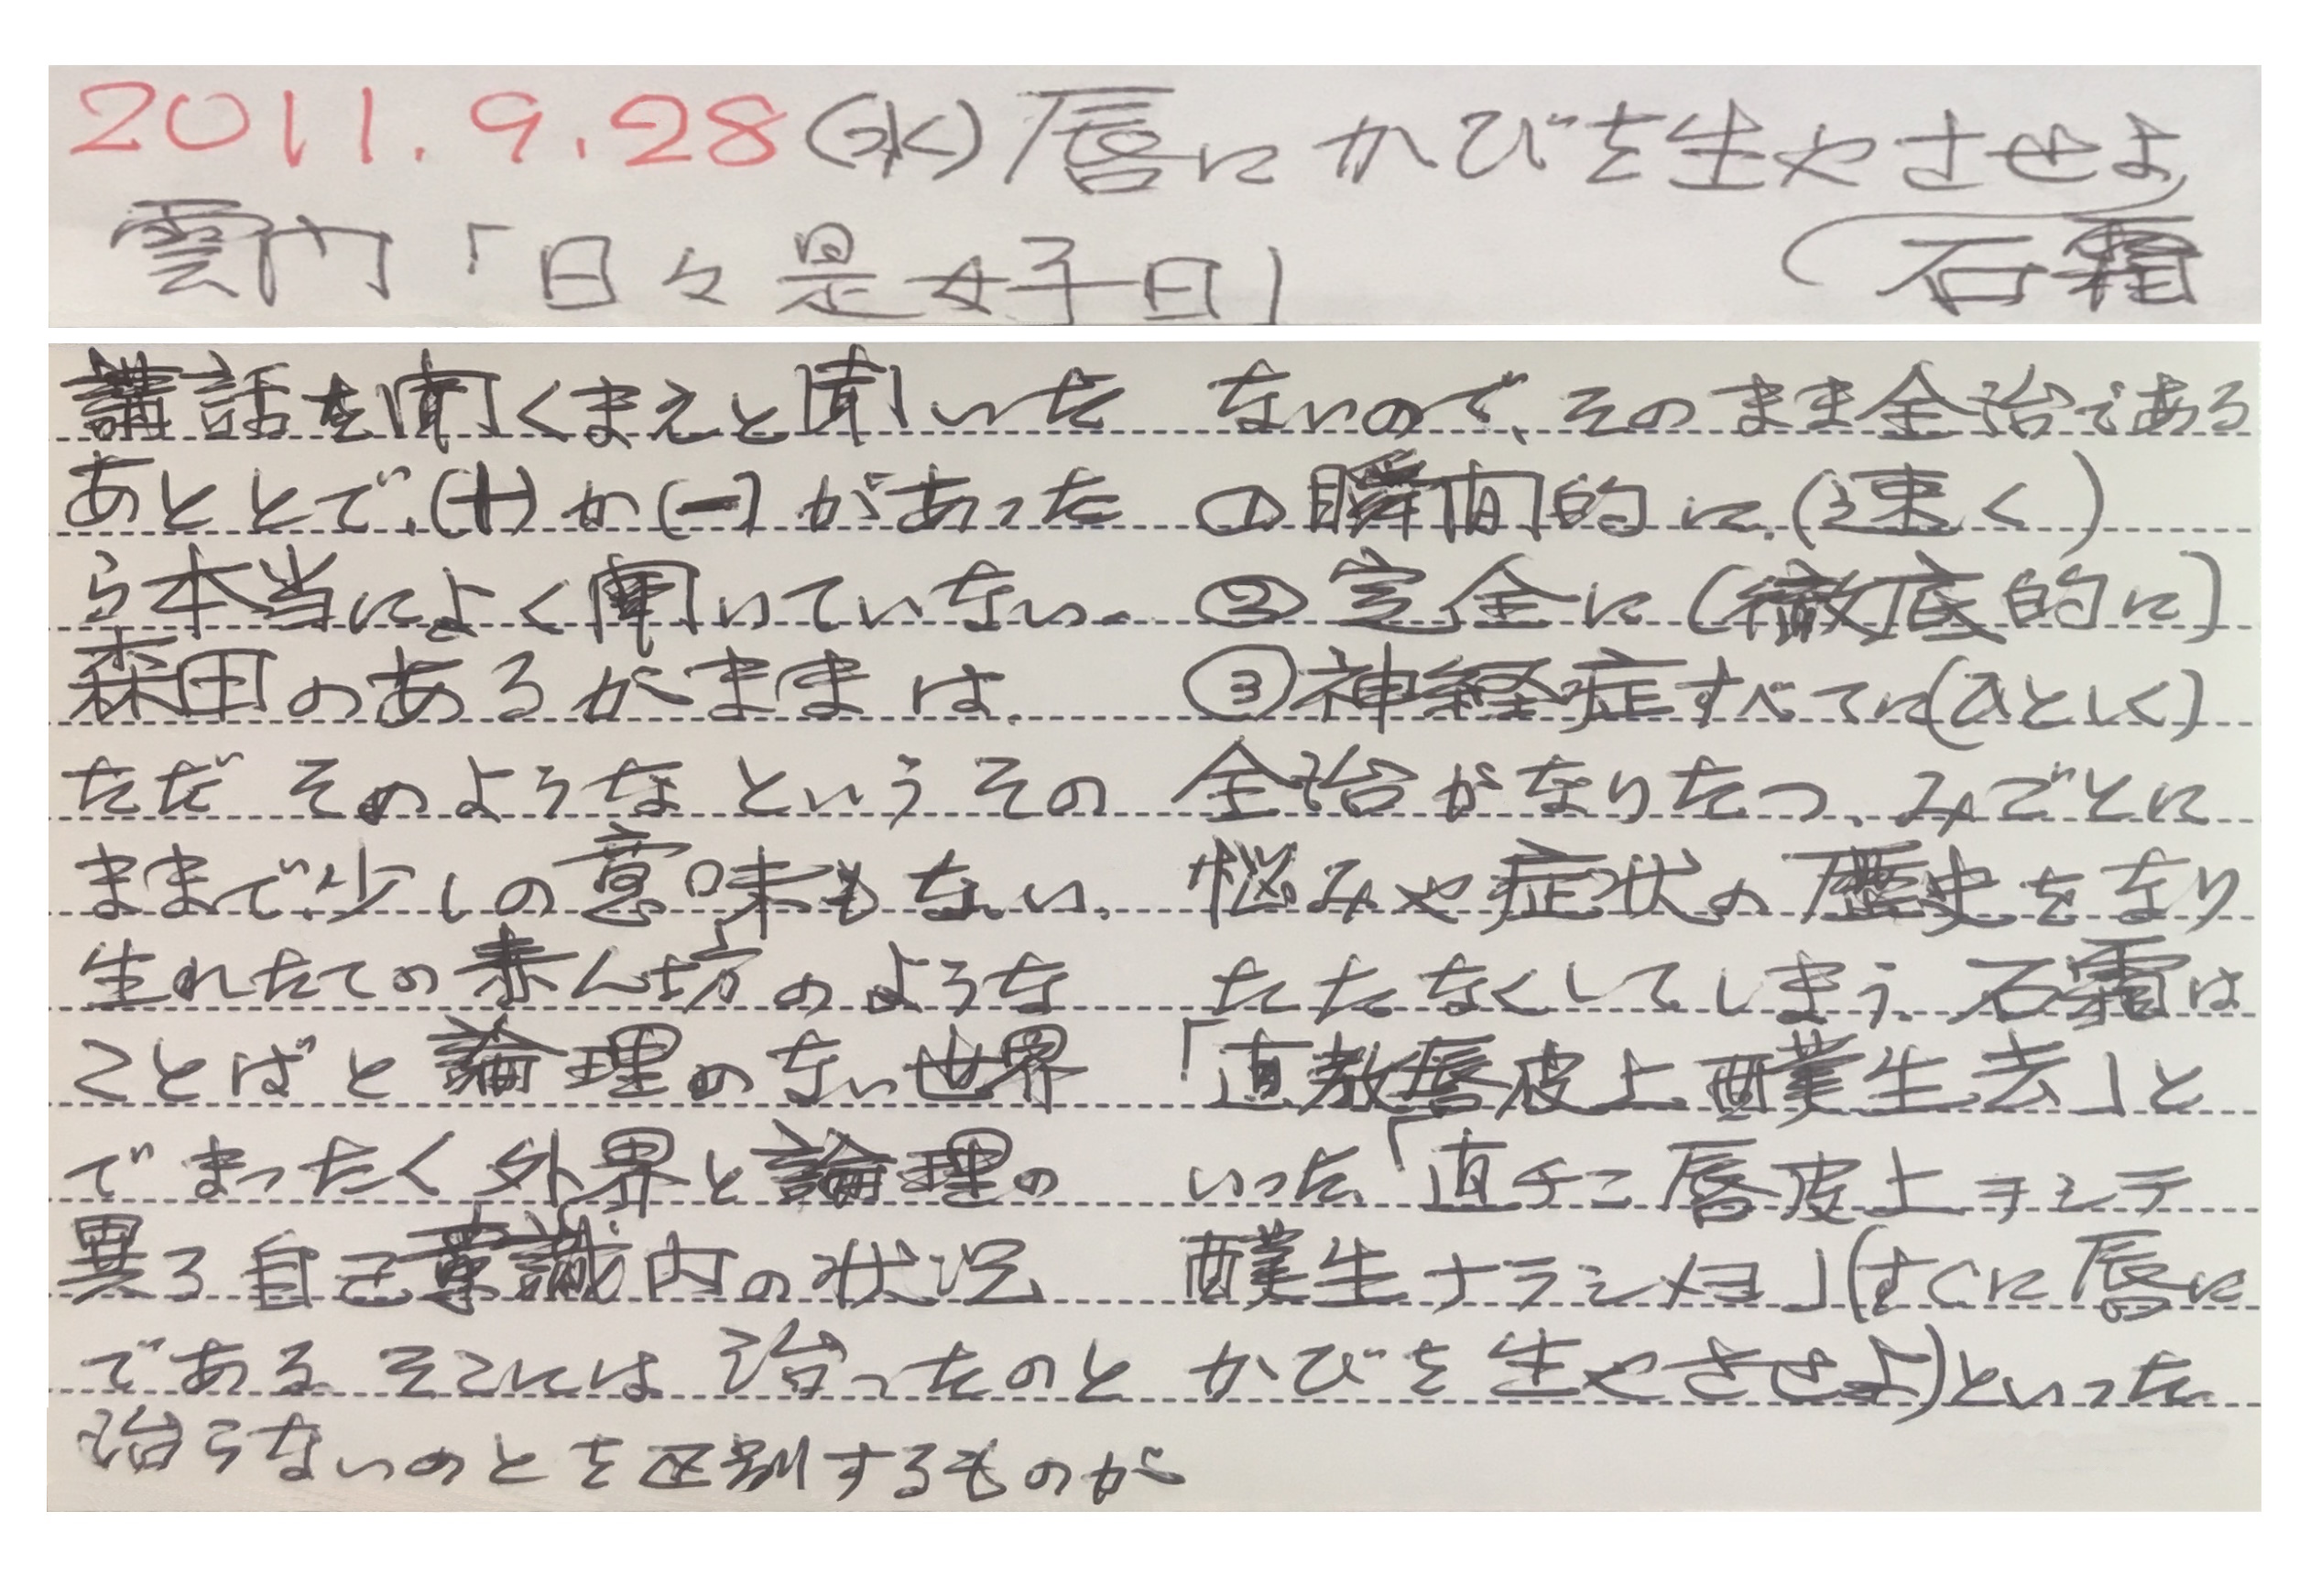 2011.9.28(水)唇にかびを生やさせよ
(石霜
雲門「日々是好日」
講話を聞くまえと聞いた
あととで、(+)か(−)があった
ら本当によく聞いていない。
森田のあるがままは、
ただ そのような という その
ままで、少しの意味もない、
生れたての赤ん坊のような
ことばと論理のない世界
で まったく外界と論理の
異る自己意識内の状況
である。そこには 治ったのと
治らないのとを区別するものが
ないので、そのまま全治である
①瞬間的に、(速く)
②完全に(徹底的に)
③神経症すべてに(ひとしく)
全治がなりたつ、みごとに
悩みや症状の歴史をなり
たたなくしてしまう。石霜は
「直教唇皮上醭生去」と
いった。「直チニ唇皮上ヲシテ
醭生ナラシメヨ」(すぐに唇に
かびを生やさせよ)といった。